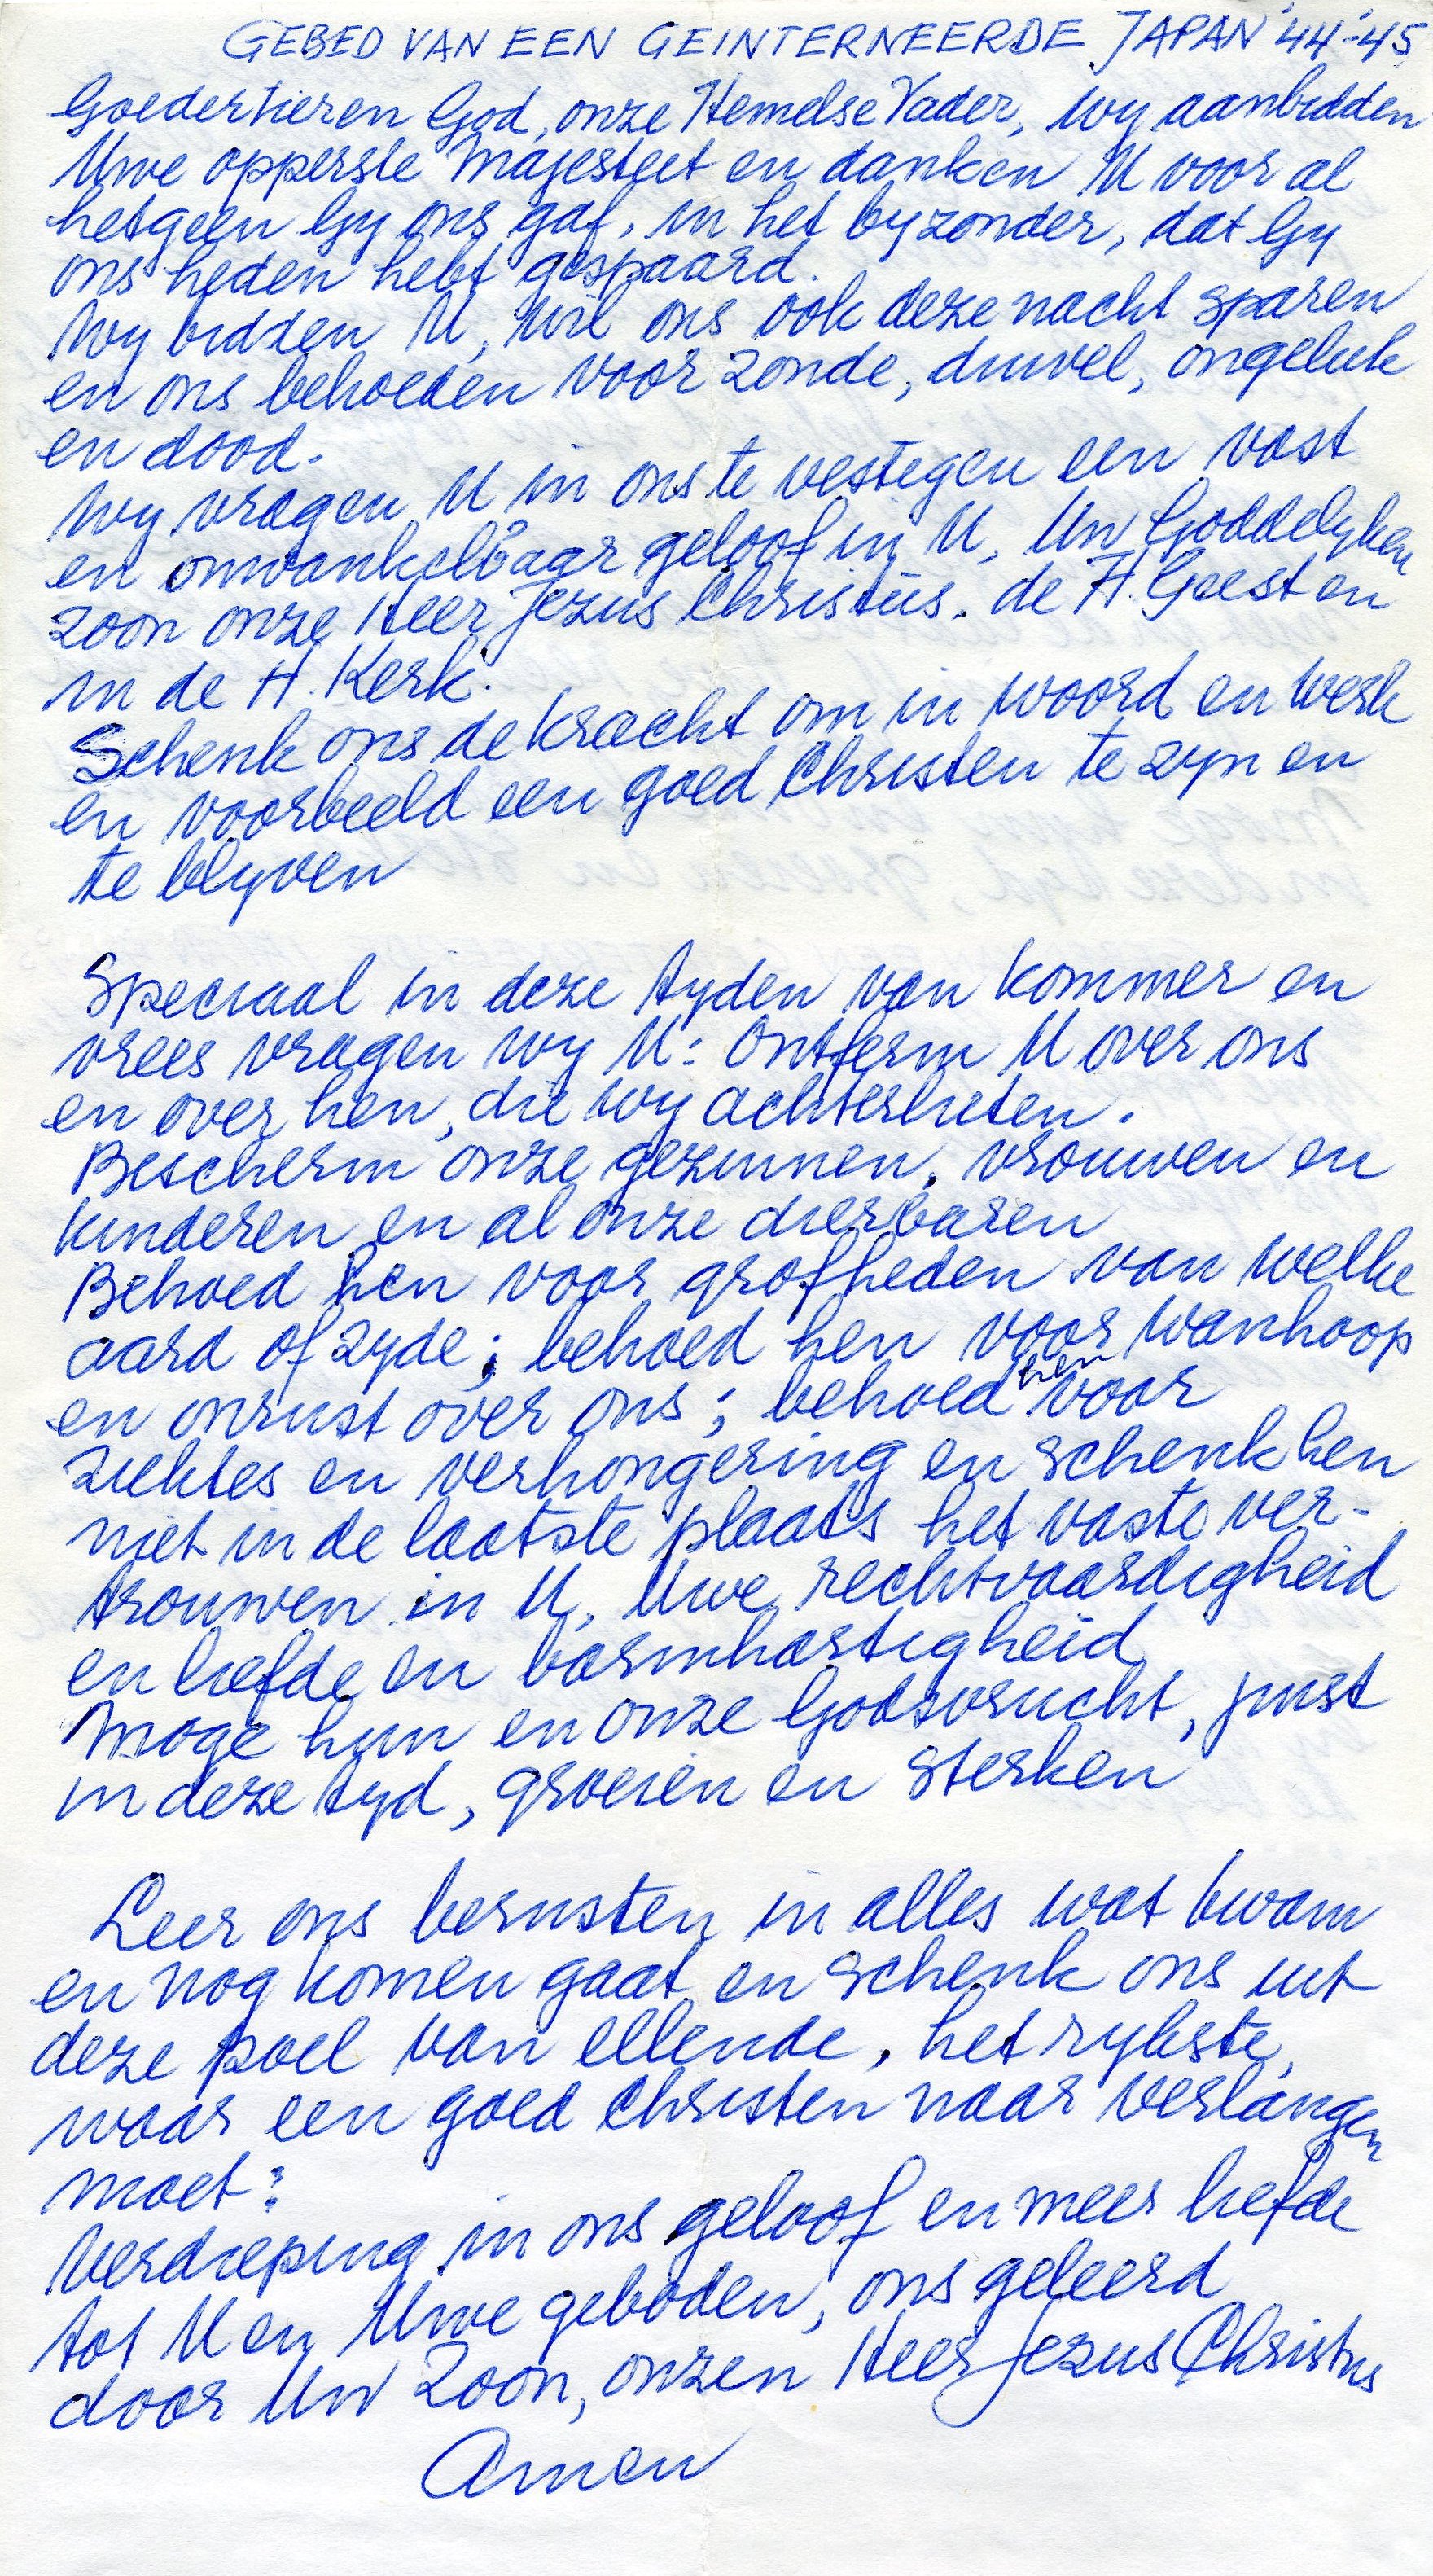 GEBED VAN EEN GEINTERNEERDE JAPAN '44-'45
Goedertieren God, onze Hemelse Vader, wy aanbidden
Uwe opperste Majesteit en danken U voor al
hetgeen Gy ons gaf, in het byzonder, dat Gy
ons heden hebt gespaard.
Wy bidden U, wil ons ook deze nacht sparen
en ons behoeden voor zonde, duivel, ongeluk
en dood.
Wy vragen U in ons te vestegen een vast
en onwankelbaar geloof in U, Uw Goddelyken
zoon onze Heer Jezus Christus, de H. Geest en
in de H. Kerk.
Schenk ons de kracht om in woord en werk
en voorbeeld een goed Christen te zyn en
te blyven
Speciaal in deze tyden van kommer en
vrees vragen wy U: Ontferm U over ons
en over hen, die wy achterlieten.
Bescherm onze gezinnen, vrouwen en
kinderen en al onze dierbaren
Behoed hen voor grofheden van welke
aard of zyde; behoed hen voor wanhoop
en onrust over ons; behoed hen voor
ziektes en verhongering en schenk hen
niet in de laatste plaats het vaste ver-
trouwen in U, Uwe rechtvaardigheid
en liefde en barmhartigheid
Moge hun en onze Godsvrucht, juist
in deze tyd, groeien en sterken
Leer ons berusten in alles wat kwam
en nog komen gaat en schenk ons uit
deze poel van ellende, het rykste,
waar een goed Christen naar verlangen
moet:
Verdieping in ons geloof en meer liefde
tot U en Uwe geboden, ons geleerd
door Uw Zoon, onzen Heer Jezus Christus
Amen